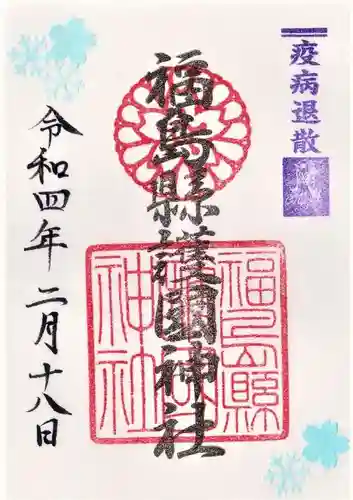 疫病退散
福島縣護國神社
福島縣護國神社
令和四年二月十八日